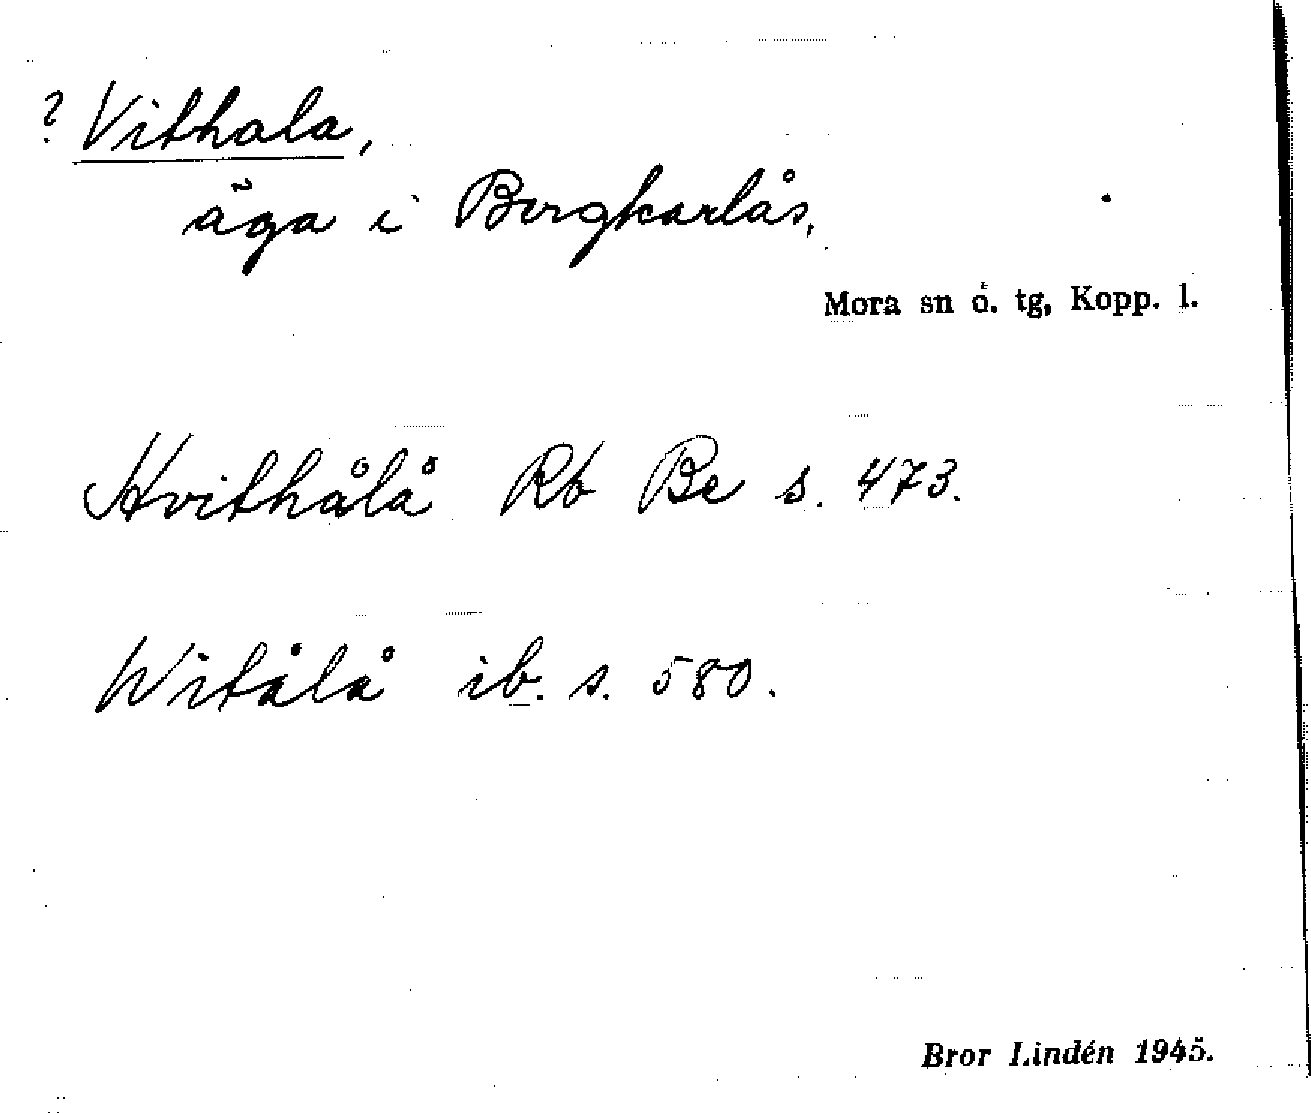 ? Vithala,
äga i Bergkarlås,
Mora sn o. tg, Kopp. l.
Hvithålå Rb Be s. 473.
Witålå ib. s. 580.
Bror Lindén 1945.